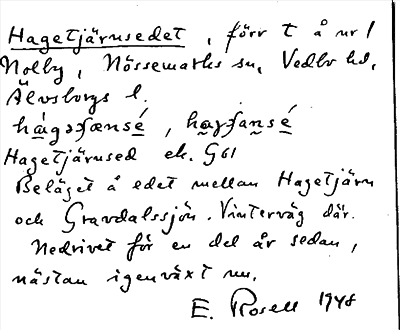 Hagetjärnsedet, förr t å nr 1
Nolby, Nössemarks sn, Vedbo hd,
Älvsborgs l.
Hagetjärnsed ek. G61
Beläget å edet mellan Hagetjärn
och Gravdalssjön. Vinterväg där.
Nedrivet för en del år sedan,
nästan igenväxt nu.
E. Rosell 1948